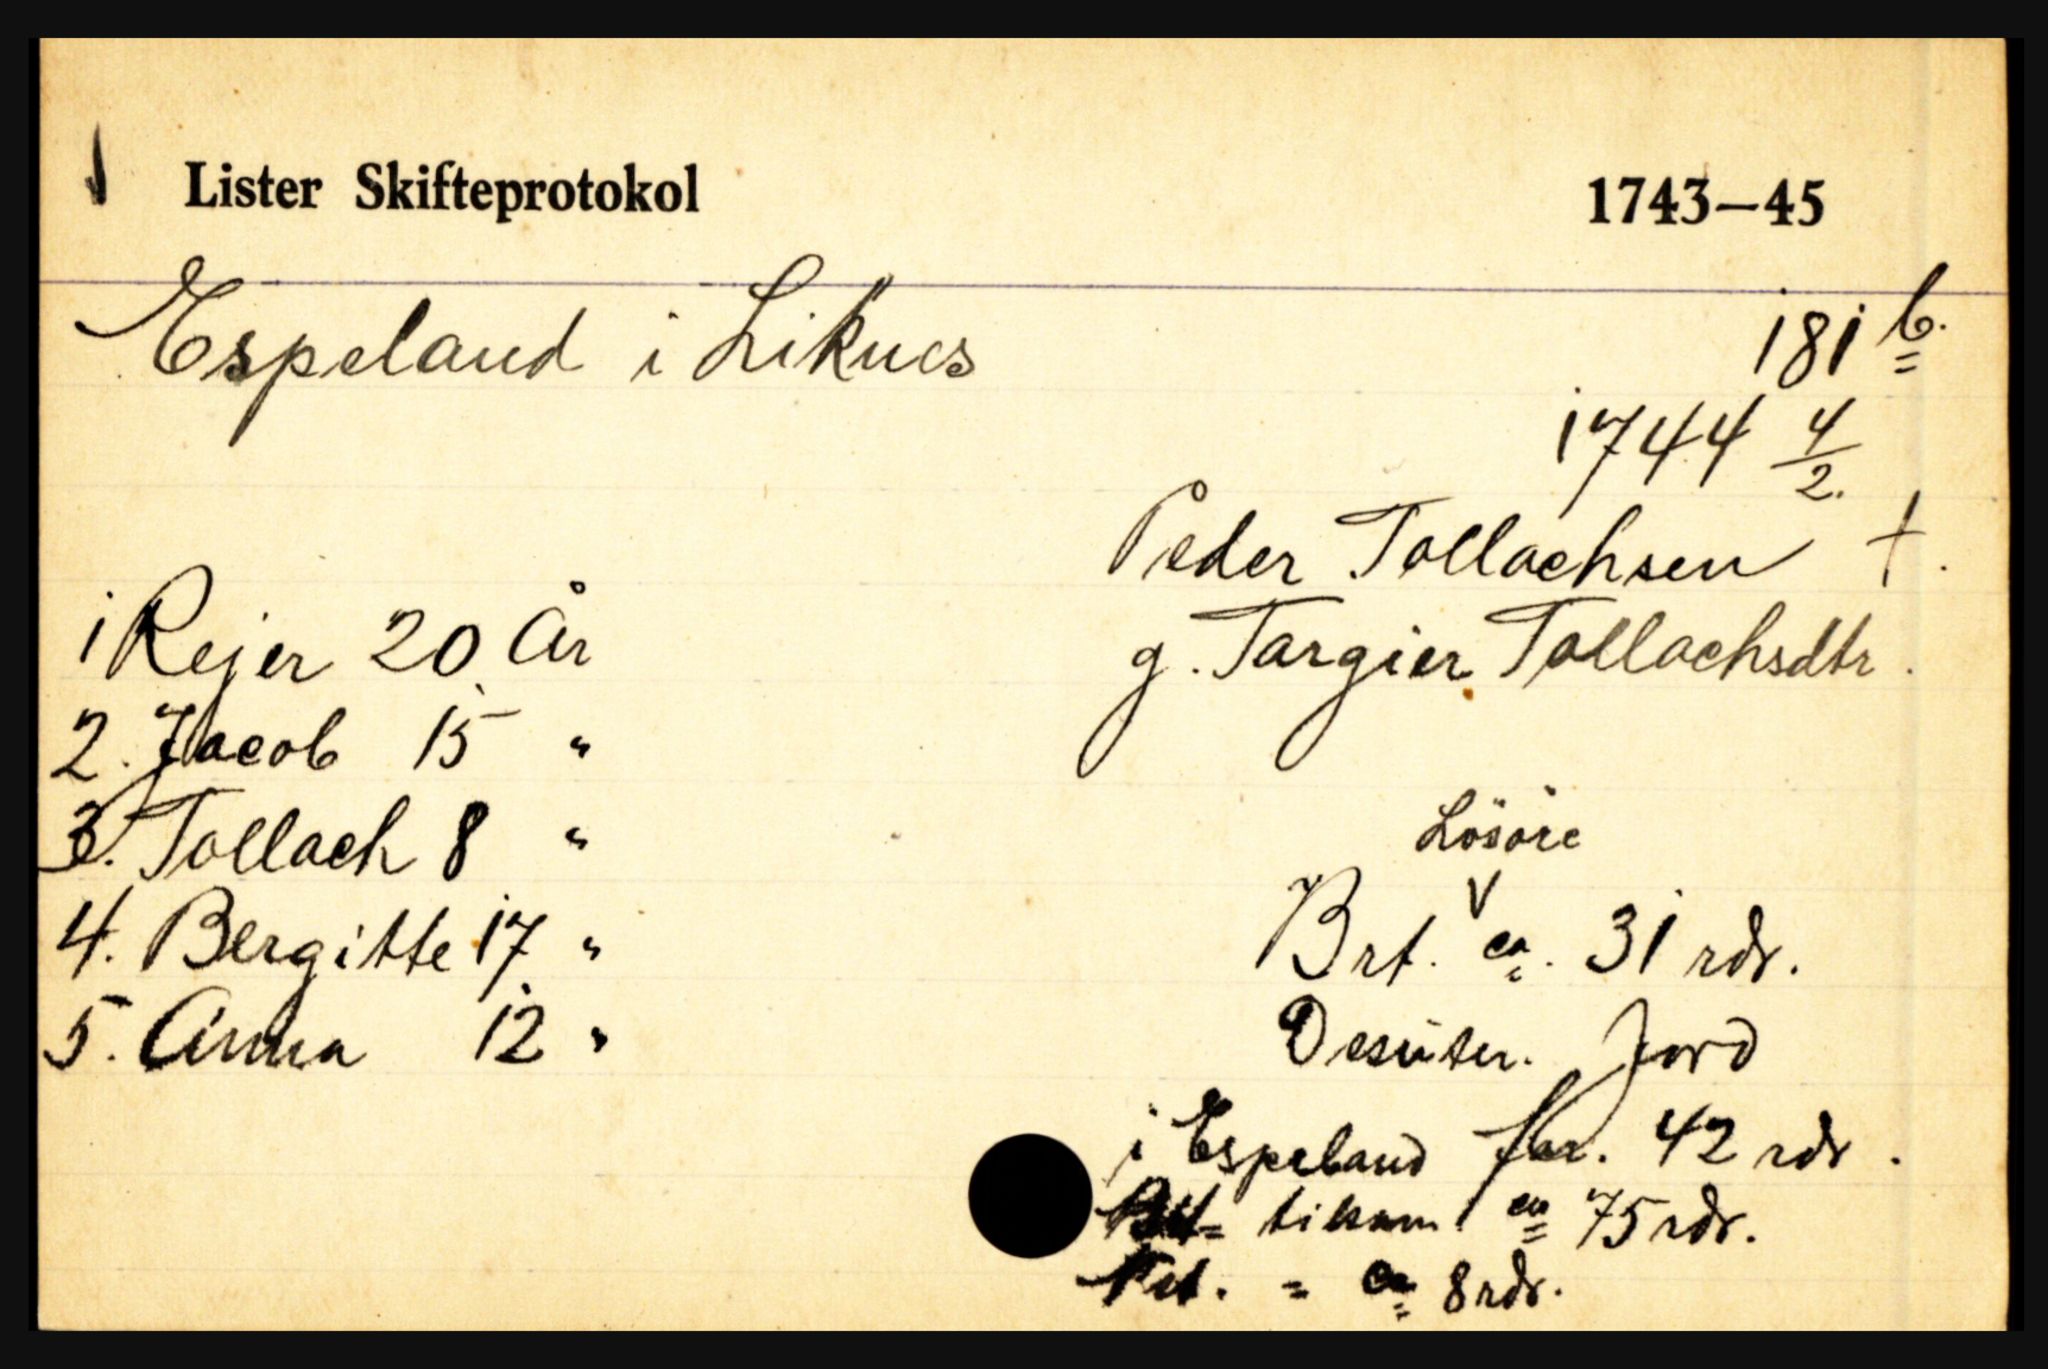 Lister Skifteprotokol 1743–45
Espeland i Liknes 181 b.
1744 4/2.
Peder Tollachsen †.
g. Targier Tollachsdtr.
1 Rejer 20 År
2. Jacob 15 "
3. Tollach 8 "
4. Bergitte 17 "
5. Anna 12 "
Lösöre
Brt. V ca. 31 rdr.
Desuten. Jord
i Espeland for. 42 rdr.
Brt= tilsam. ca 75 rdr.
Net. = ca 8 rdr.